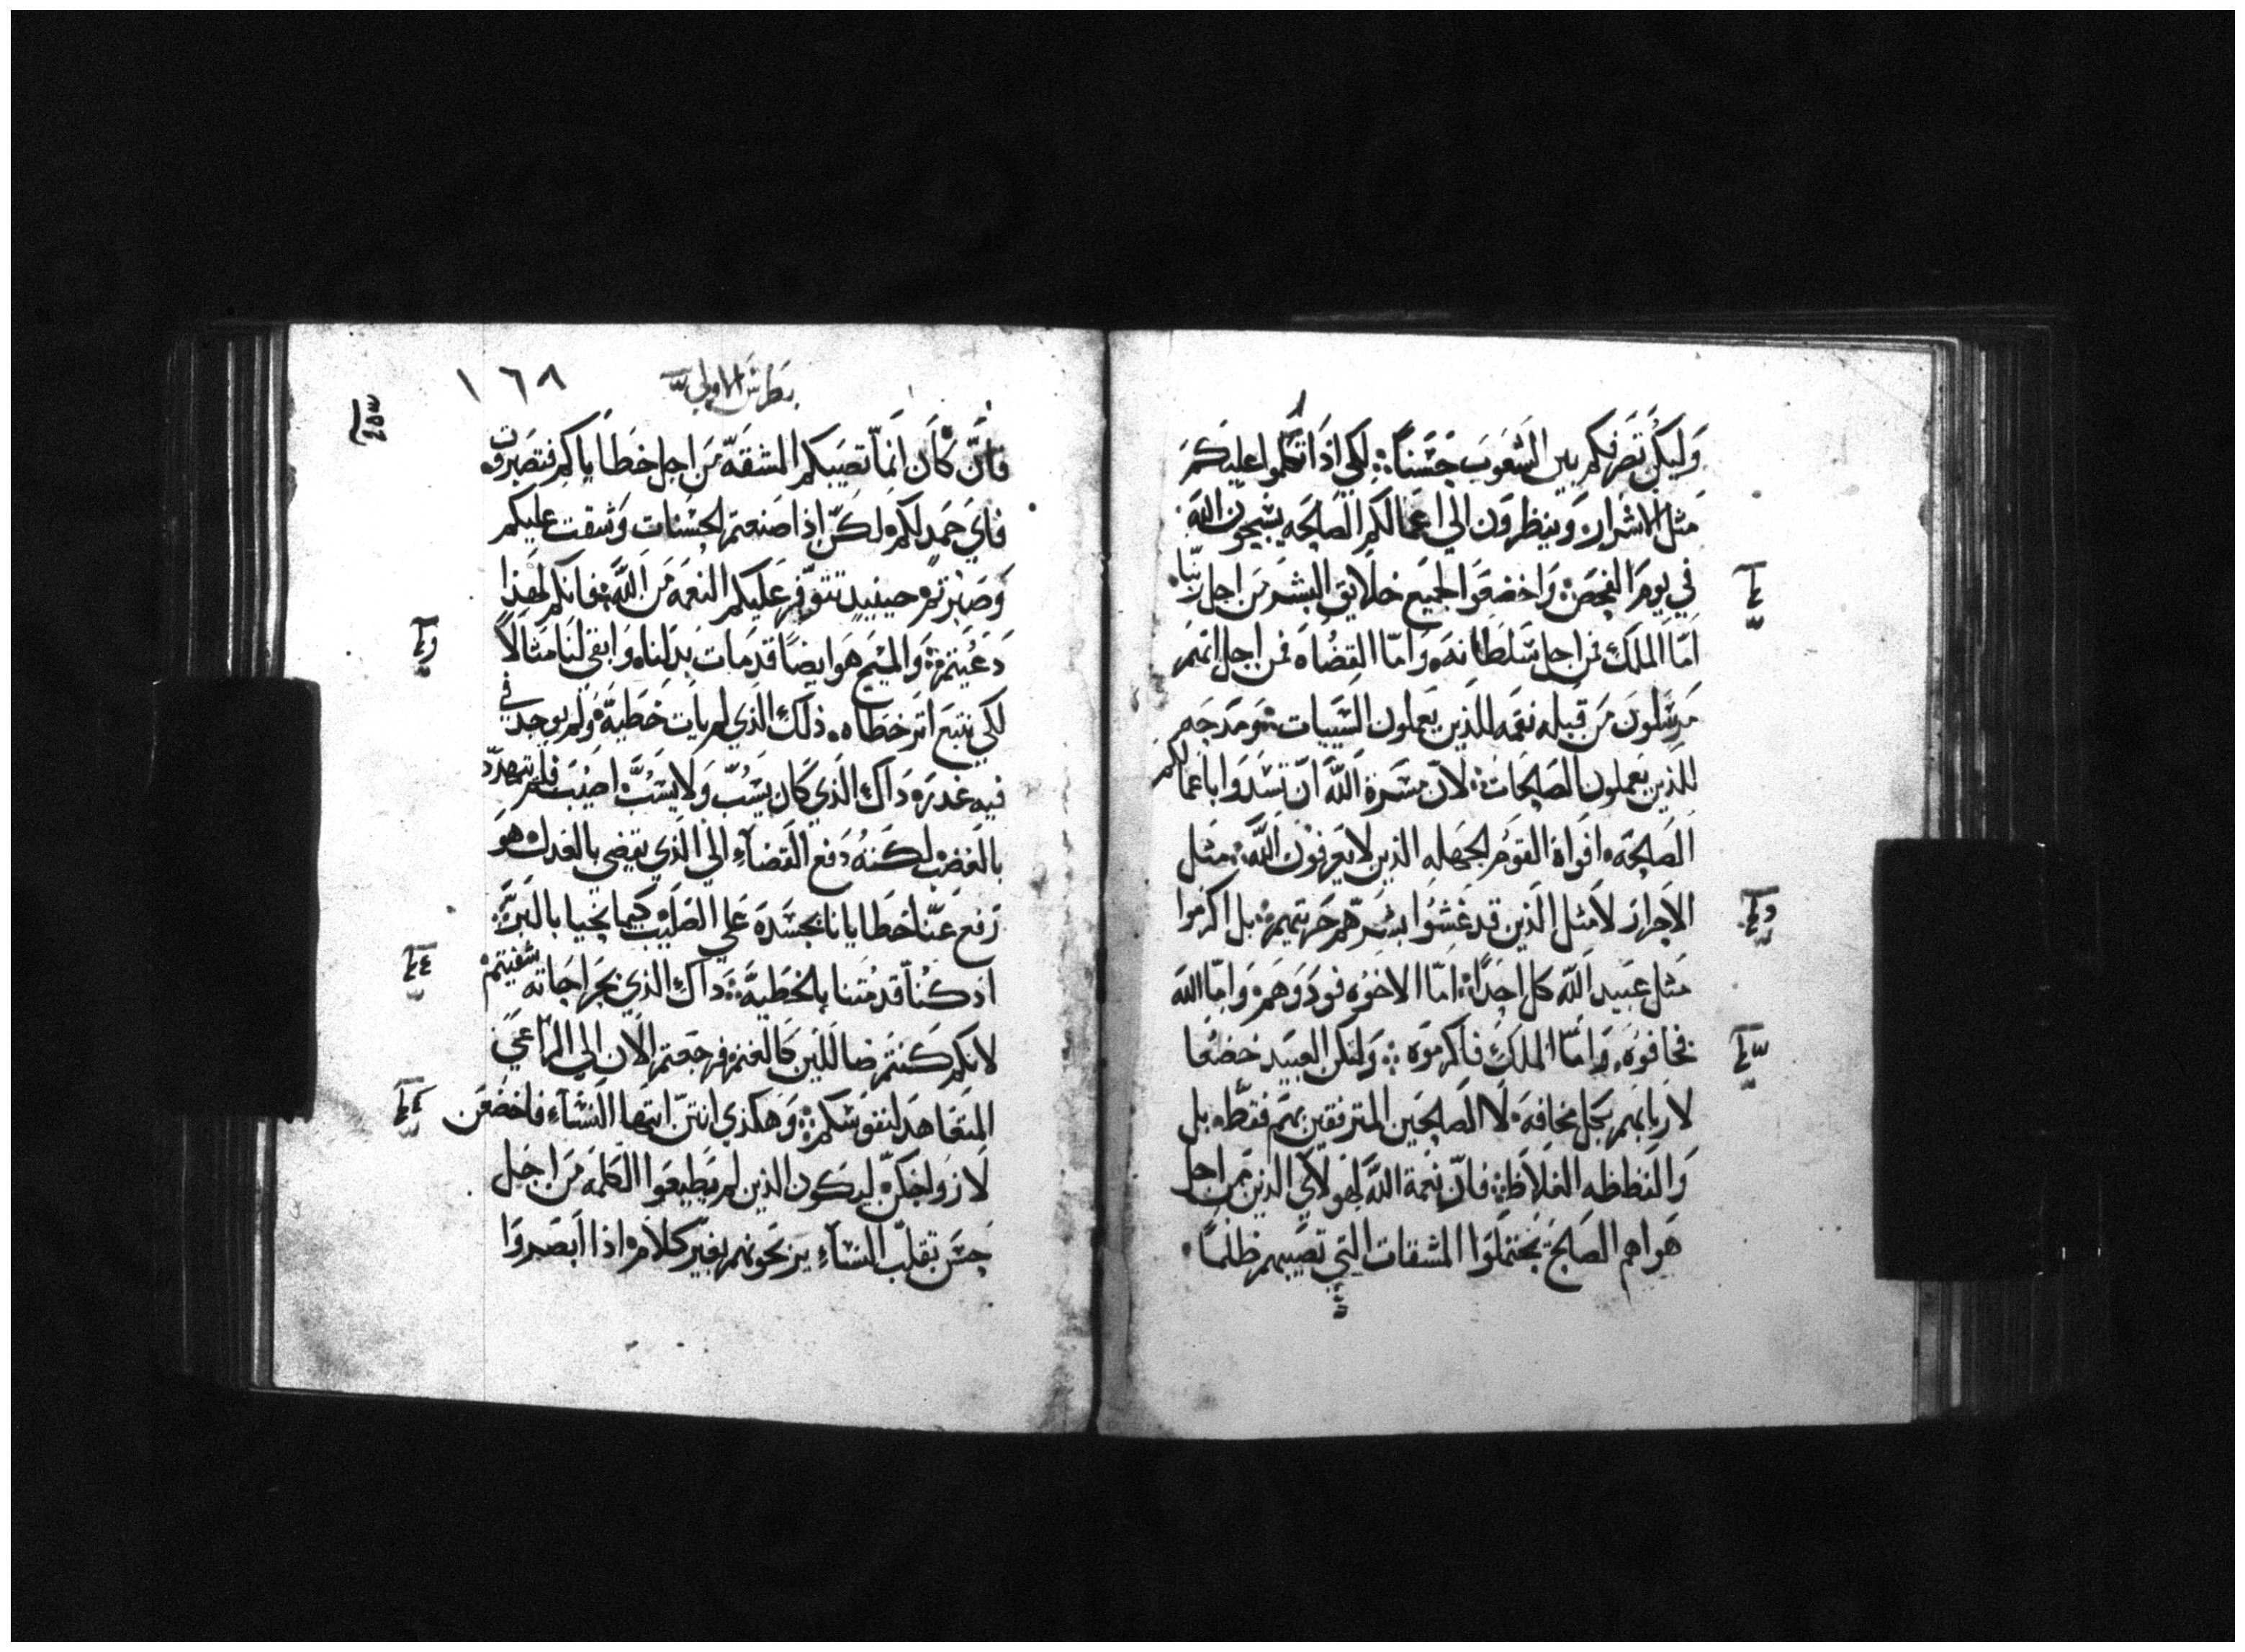 وَليَكُن تصَرفكم بين الشعوب حَسَناً؛ لكي اذا تكلموا عليكم
مثل الاشرار، وينظرون الي اعمالكم الصالحه يسبحون الله
في يوم الفحص؛ واخضعوا لجميع خلايق البشر من اجل ربنا،
امّا الملك فمن اجل سلطانه، وامّا القضاه فمن اجل انهم
مرسلون من قبله نقمه للذين يعملون السييات؛ ومدحه
للذين يعملون الصالحات؛ لانّ مسرة الله ان تسدوا باعمالكم
الصالحه، افواه القوم الجهله الذين لا يعرفون الله؛ مثل
الاحرار لا مثل الذين قد غشوا بشرهم حريتهم؛ بل اكرموا
مثل عبيد الله كل احداً؛ امّا الاخوه فودوهم، وامّا الله
فخافوه، وامّا الملك فاكرموه؛ ولتكن العبيد خضعا
لاربابهم بكل مخافه، لا الصالحين المترفقين بهم فقط، بل
والفظظه الغلاظ؛ فانّ نعمة الله لهولاي الذين من اجل
هواهم الصالح يحتملوا المشقات التي تصيبهم ظلماً،
بطرس الاولي
١٦٨
فانّ كان انما تصيبكم المشقه من اجل خطاياكم فتصبرون
فاي حمد لكم، لكن اذا صنعتم الحسنات وشقت عليكم
وصبرتم، حينيذٍ تتوفر عليكم النعمه من الله؛ فانكم لهذا
دعيتم؛ والمسيح هو ايضاً قد مات بدلنا، وابقي لنا مثالاً
لكي نتبع اثر خطاه، ذلك الذي لم يات خطيه، ولم يوجد في
فيه غدر، داك الذي كان يُسَبّ ولا يسُبّ اصيب فلم يتهدّد
بالغضب، لكنه دفع القضاء الي الذي يقضي بالعدل، هو
رفع عنّا خطايانا بجسده علي الصليب كيما نحيا بالبرّ؛
اذ كنّا قد متنا بالخطيه؛ داك الذي بجراحاته شفيتم،
لانكم كنتم ضاللين كالغنم، فرجعتم الان الي الراعي
المتعاهد لنفوسكم؛ وهكذي انتنّ ايتها النساء فاخضعن
لازواجكنّ، ليكون الذين لم يطيعوا الكلمه من اجل
حسن تقلب النساء يربحونهم بغير كلام، اذا ابصروا